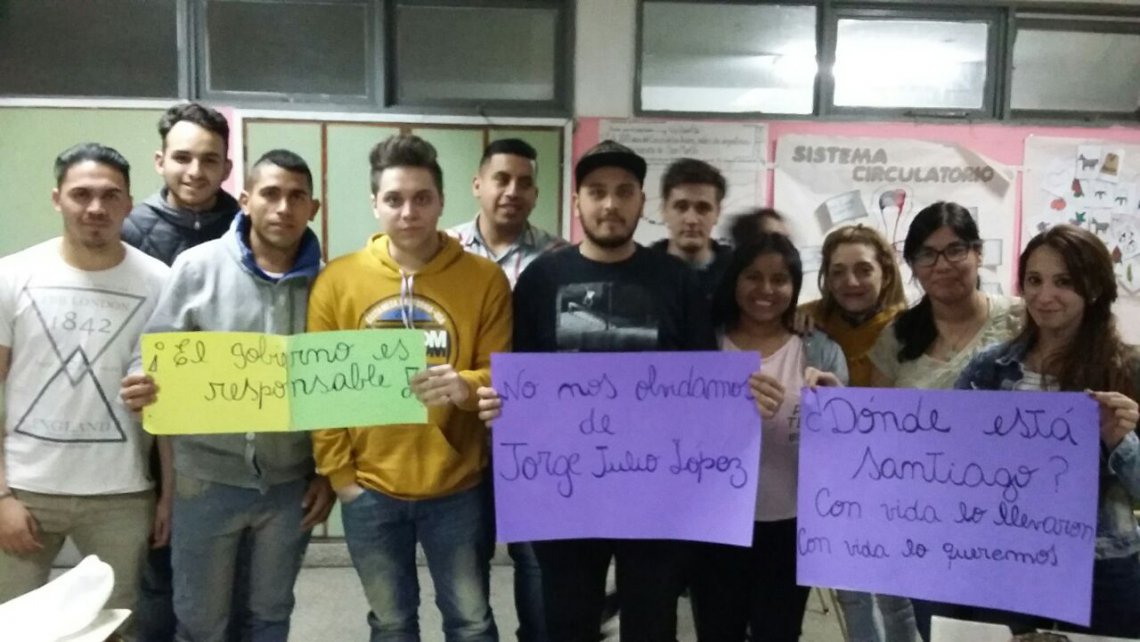 SISTEMA
CIRCULATORIO
1842
ENGLAND
¡El gobierno es
responsable
No nos olvidamos
de
Jorge Julio Lopez
¿Dónde está
Santiago?
Con vida lo llevaron
Con vida lo queremos